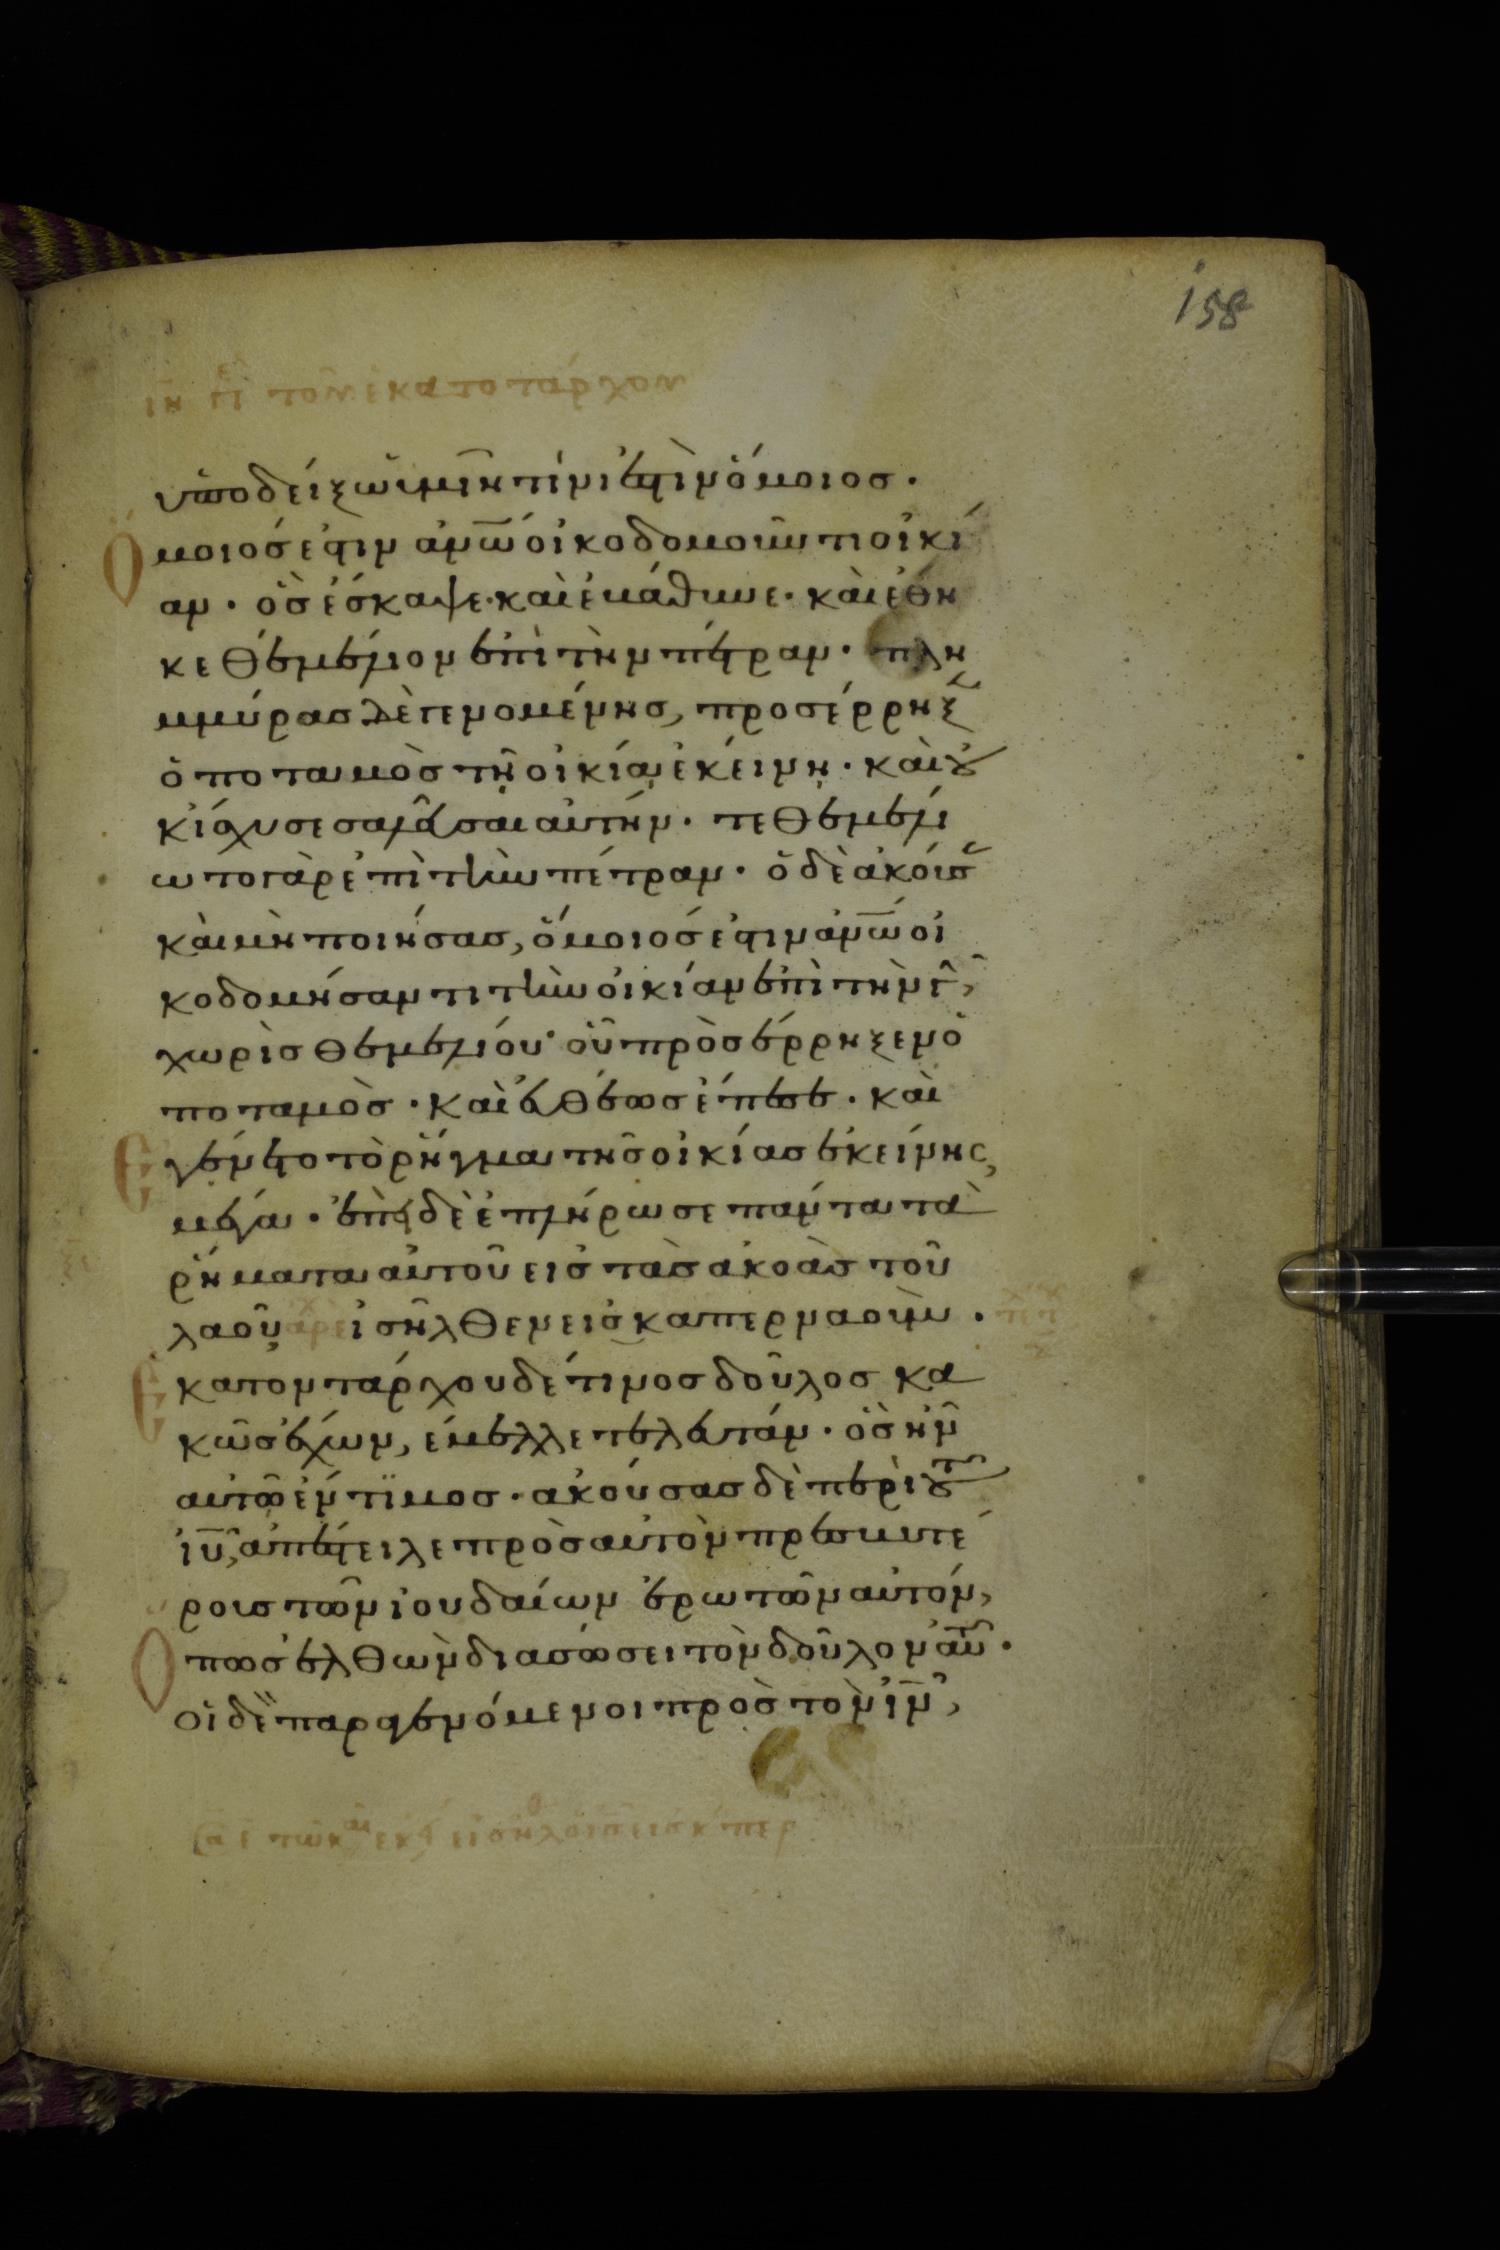 158
τὸν ἑκατοτάρχον
ὑποδείξω ὑμῖν τίνι ἐστὶν ὅμοιοσ ·
Ὅμοιόσ ἐστιν ἀν̅ω̅ οἰκοδομοῦντι οἰκί
αν · ὃσ ἔσκαψε · καὶ ἐβάθυνε · καὶ ἔθη
κε θεμέλιον ἐπὶ τὴν πέτραν · πλη
μμύρασ δὲ γενομένησ, προσέρρηξ
ὁ ποταμὸσ τῇ οἰκίᾳ ἐκείνῃ · καὶ οὐ
κ ἴσχυσε σαλεῦσαι αὐτήν · τεθεμελί
ωτο γὰρ ἐπὶ τὴν πέτραν · ὁ δὲ ἀκούσ
καὶ μὴ ποιήσασ, ὅμοιόσ ἐστιν ἀν̅ω̅ οἰ
κοδομήσαντι τὴν οἰκίαν ἐπὶ τὴν γῆ,
χωρὶσ θεμελίου · οὗ προσέρρηξεν ὁ
ποταμὸσ · καὶ εὐθέωσ ἔπεσε · καὶ
Ἐγένετο τὸ ῥῆγμα τῆσ οἰκίασ ἐκείνησ,
μέγα · ἐπεὶ δὲ ἐπλήρωσε πάντα τὰ
ῥήματα αὐτοῦ εἰσ τὰσ ἀκοὰσ τοῦ
λαοῦ, εἰσῆλθεν εἰσ καπερναούμ ·
Ἑκατοντάρχου δέ τινοσ δοῦλοσ κα
κῶσ ἔχων, ἔμελλε τελευτάν · ὃσ ἦν
αὐτῶ ἔντϊμοσ · ἀκούσασ δὲ περὶ τοῦ
ἰ̅υ̅, ἀπέστειλε πρὸσ αὐτὸν πρεσβυτέ
ρουσ τῶν ἰουδαίων ἐρωτῶν αὐτόν,
Ὅπωσ ἐλθὼν διασώσει τὸν δοῦλον αὐτοῦ ·
οἱ δὲ παραγενόμενοι πρὸσ τὸν ἰ̅ν̅,